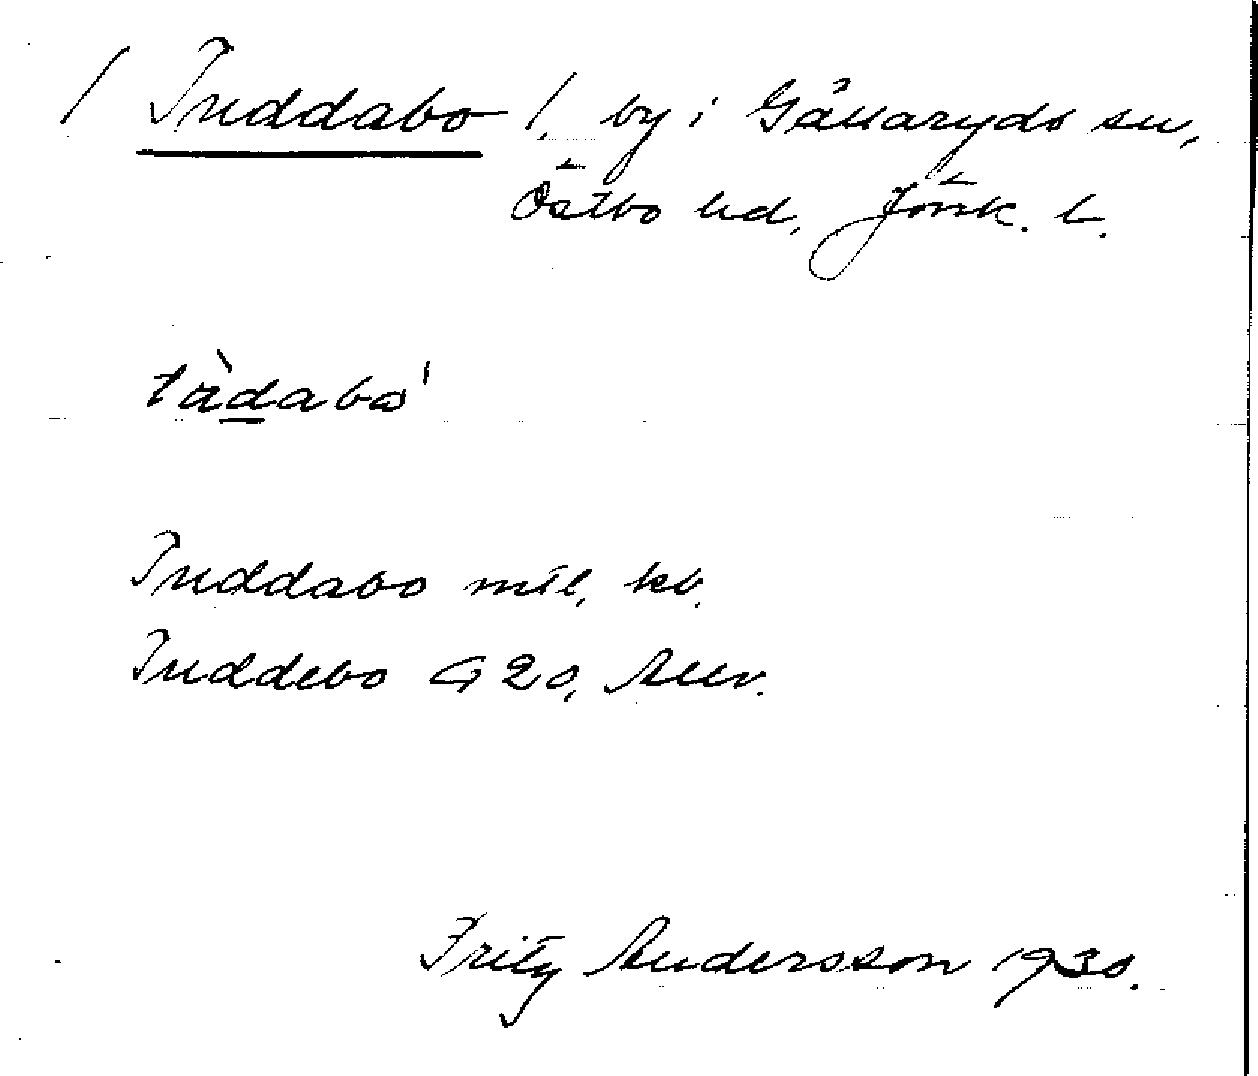 / Tuddabo /, by i Gällaryds sn,
Östbo hd, Jönk. l.
tàdabo'
Tuddabo mtl, kb.
Tuddebo G 20, Allm.
Fritz Andersson 1930.